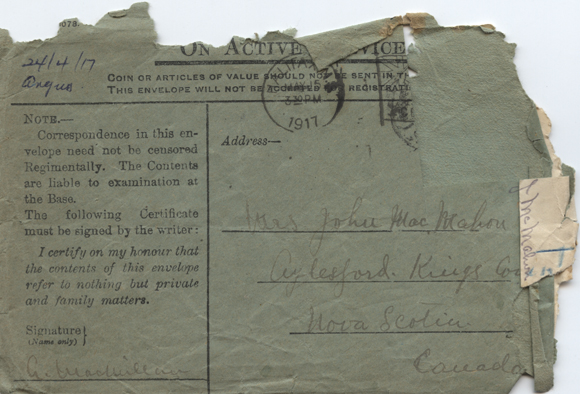 078.
ON ACTIVE SERVICE
24/4/17
Angus.
COIN OR ARTICLES OF VALUE SHOULD NOT BE SENT IN TH
THIS ENVELOPE WILL NOT BE ACCEPTED FOR REGISTRATI
MY 15
3 30 PM
1917
NOTE.—
Correspondence in this en-
velope need not be censored
Regimentally. The Contents
are liable to examination at
the Base.
The following Certificate
must be signed by the writer:
I certify on my honour that
the contents of this envelope
refer to nothing but private
and family matters.
Signature
(Name only)
A. MacMillan
Address—
Mrs John MacMahon
Aylesford. Kings Co
Nova Scotia
Canada